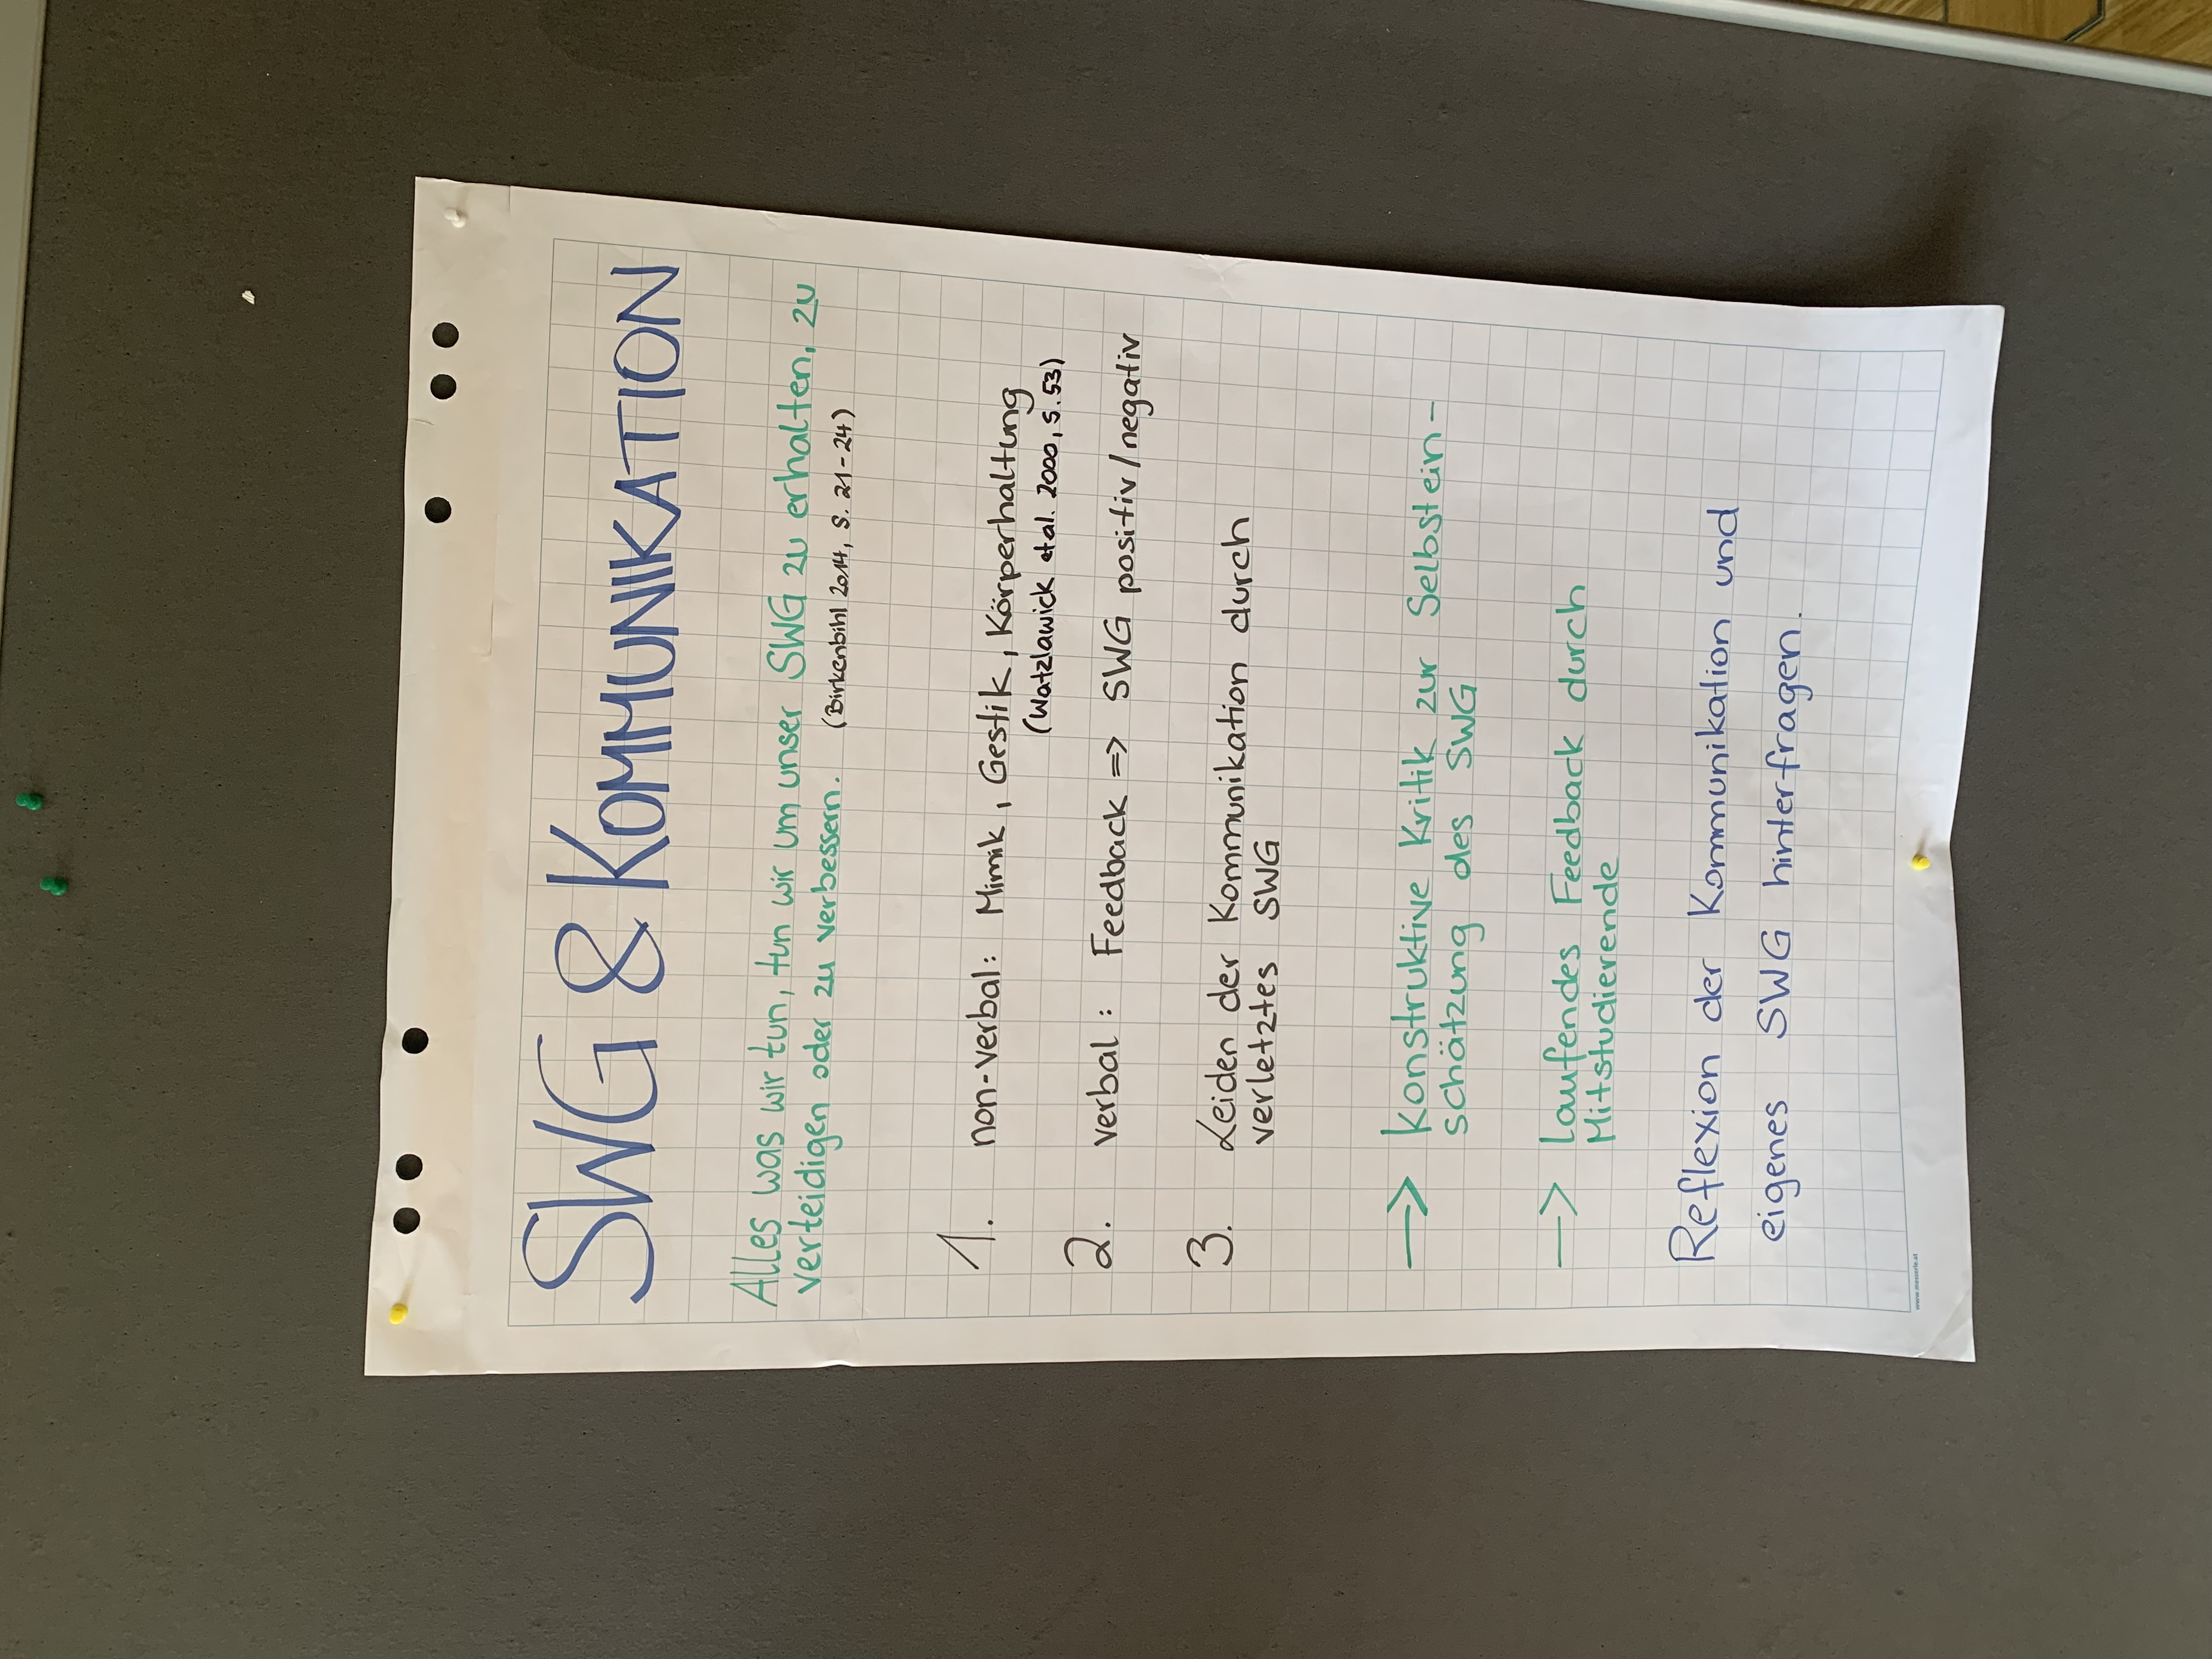 SWG & KOMMUNIKATION
Alles was wir tun, tun wir um unser SWG zu erhalten, zu
verteidigen oder zu verbessern.
(Birkenbihl 2014, S. 21-24)
1. non-verbal: Mimik, Gestik, Körperhaltung
(Watzlawick et al. 2000, S. 53)
2. verbal: Feedback => SWG positiv/negativ
3. Leiden der Kommunikation durch
verletztes SWG
→ Konstruktive Kritik zur Selbstein-
schätzung des SWG
→ laufendes Feedback durch
Mitstudierende
Reflexion der Kommunikation und
eigenes SWG hinterfragen.